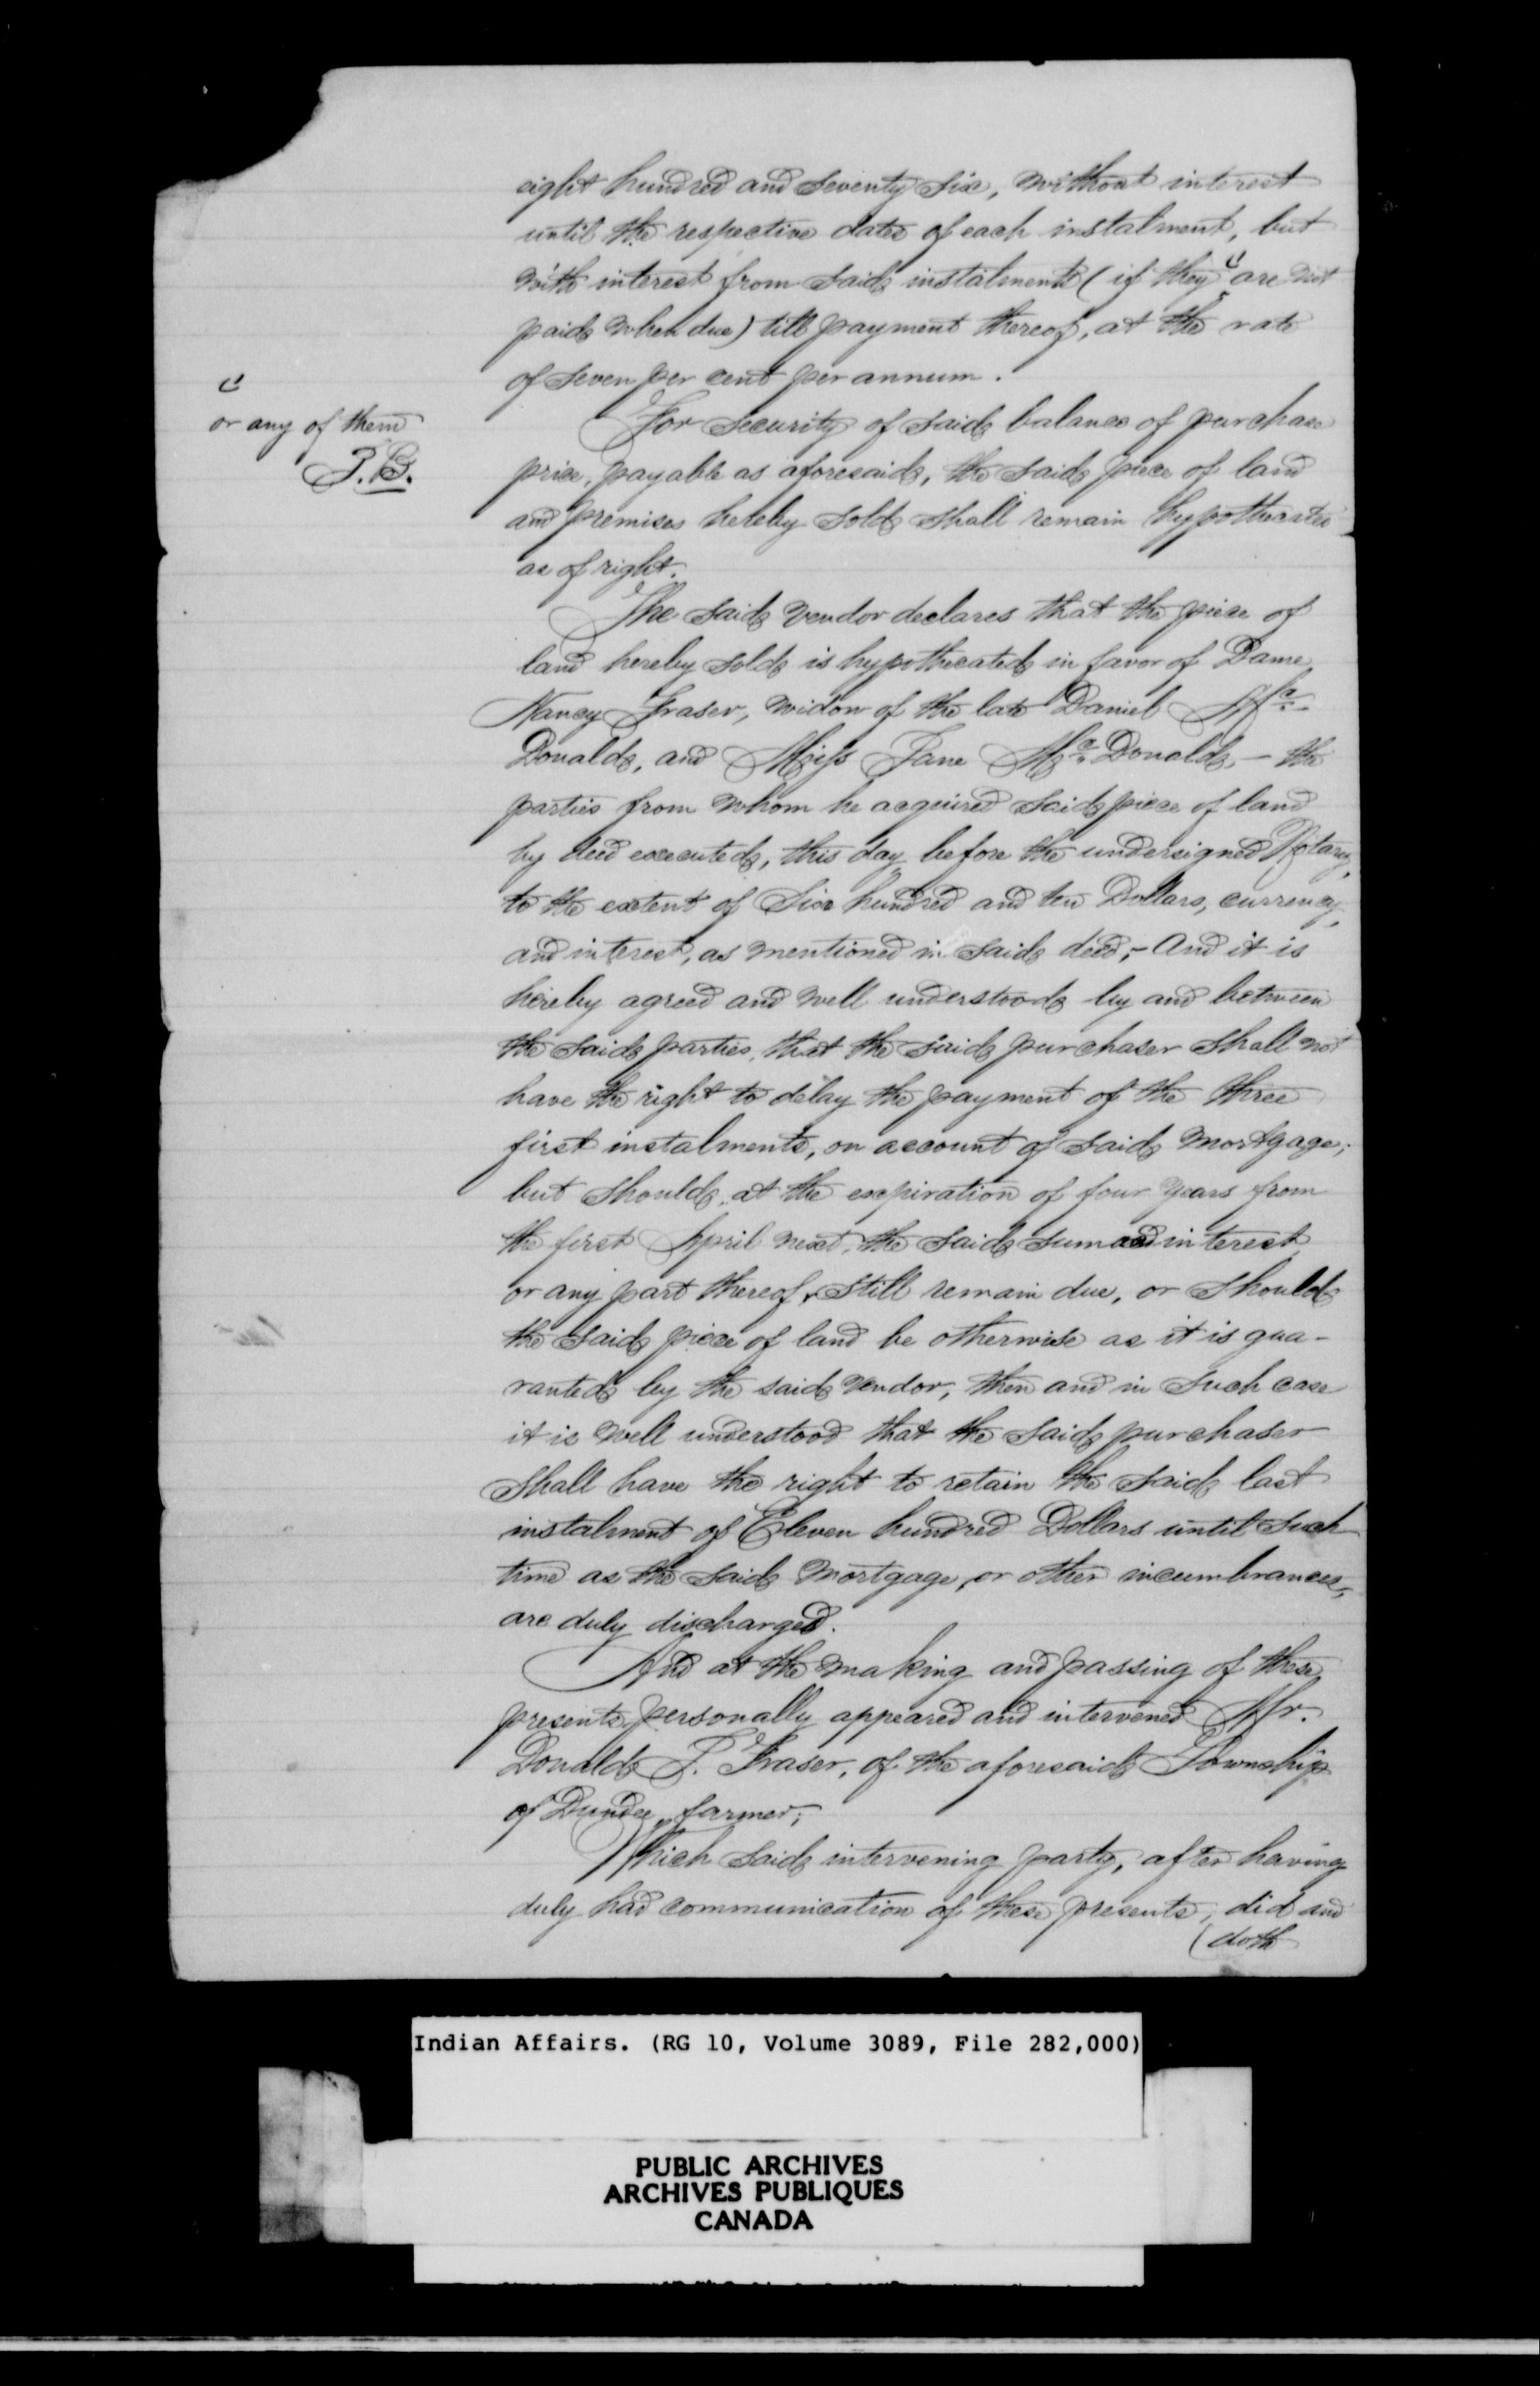 eight hundred and seventy six, without interest
until the respective dates of each instalment, but
with interest from said instalments (if they are not
paid when due) till payment thereof, at the rate
of seven per cent per annum.
or any of them
For security of said balance of purchase
price, payable as aforesaid, the said piece of land
and premises hereby sold shall remain hypothecated
as of right.
The said vendor declares that the piece of
land hereby sold is hypothecated in favor of Dame
Nancy Fraser, widow of the late Daniel Mc
Donald, and Miss Jane Mc Donald, - the
parties from whom he acquired said piece of land
by deed executed, this day, before the undersigned Notary,
to the extent of Six hundred and ten Dollars, currency,
and interest, as mentioned in said deed; - And it is
hereby agreed and well understood by and between
the said parties, that the said purchaser shall not
have the right to delay the payment of the three
first instalments, on account of said mortgage;
but should, at the expiration of four years from
the first April next, the said sum and interest
or any part thereof, still remain due, or should
the said piece of land be otherwise as it is gua-
ranted by the said vendor, then and in such case
it is well understood that the said purchaser
shall have the right to retain the said last
instalment of Eleven hundred Dollars until such
time as the said mortgage, or other incumbrances,
are duly discharged.
And at the making and passing of these
presents, personally appeared and intervened Mr.
Donald Fraser, of the aforesaid Township
of Dundee, farmer;
Which said intervening party, after having
duly had communication of these presents, did and
(doth
Indian Affairs. (RG 10, Volume 3089, File 282,000)
PUBLIC ARCHIVES
ARCHIVES PUBLIQUES
CANADA